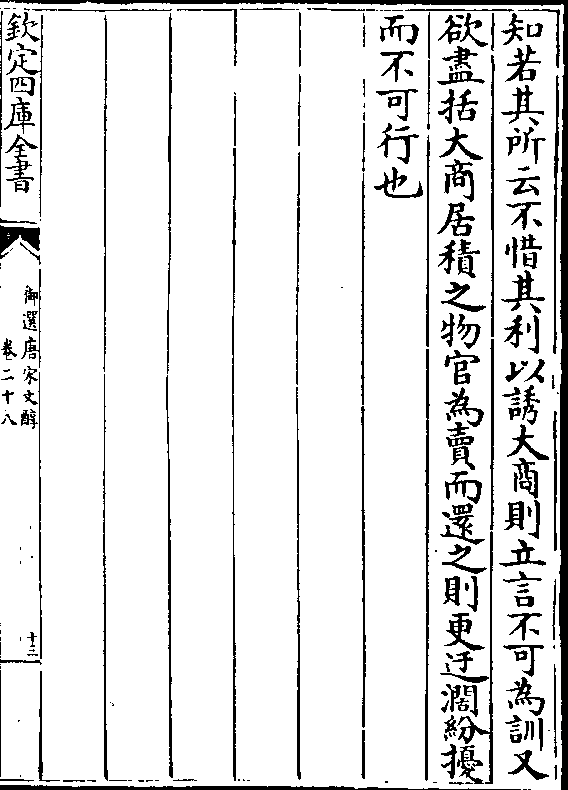 知若其所云不惜其利以誘大商則立言不可為訓又
欲盡括大商居積之物官為賣而還之則更迂濶紛擾
而不可行也
欽定四庫全書
御選唐宋文醇
卷二十八
十三